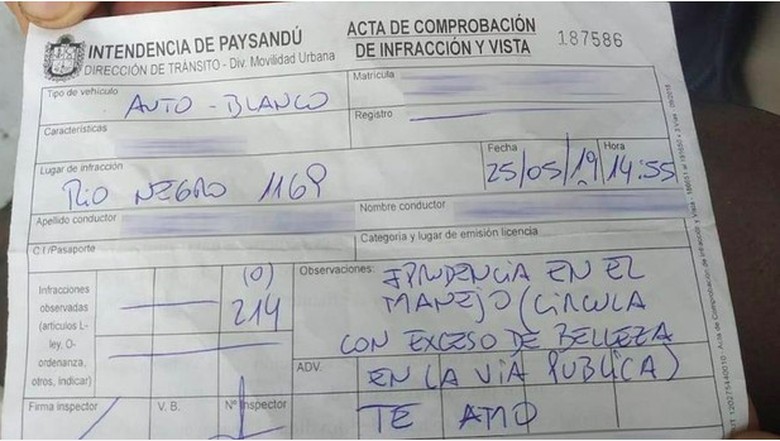 INTENDENCIA DE PAYSANDÚ
DIRECCIÓN DE TRÁNSITO - Div. Movilidad Urbana
ACTA DE COMPROBACIÓN
DE INFRACCIÓN Y VISTA
187586
Tipo de vehículo
AUTO - BLANCO
Matrícula
Características
Registro
Lugar de infracción
RIO NEGRO 1169
Fecha
25/05/19
Hora
14:55
Apellido conductor
Nombre conductor
C.I/Pasaporte
Categoria y lugar de emisión licencia
Infracciones
observadas
(artículos L-
ley, O-
ordenanza,
otros, indicar)
(0)
214
Observaciones: IPRUDENCIA EN EL
MANEJO (CIRCULA
CON EXCESO DE BELLEZA
ADV. EN LA VIA PUBLICA)
TE AMO
Firma inspector
V. B.
Nº Inspector